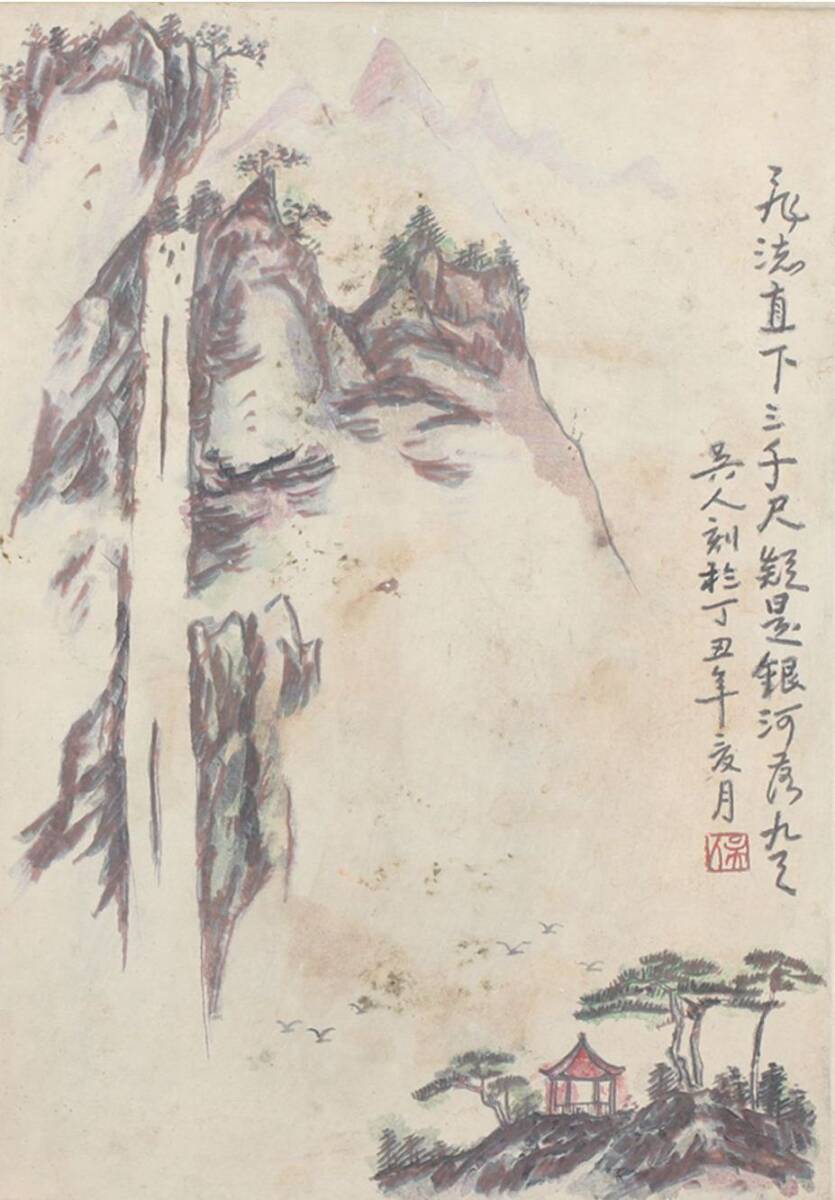 飛流直下三千尺疑是銀河落九天
吳人刻於丁丑年月
吳人